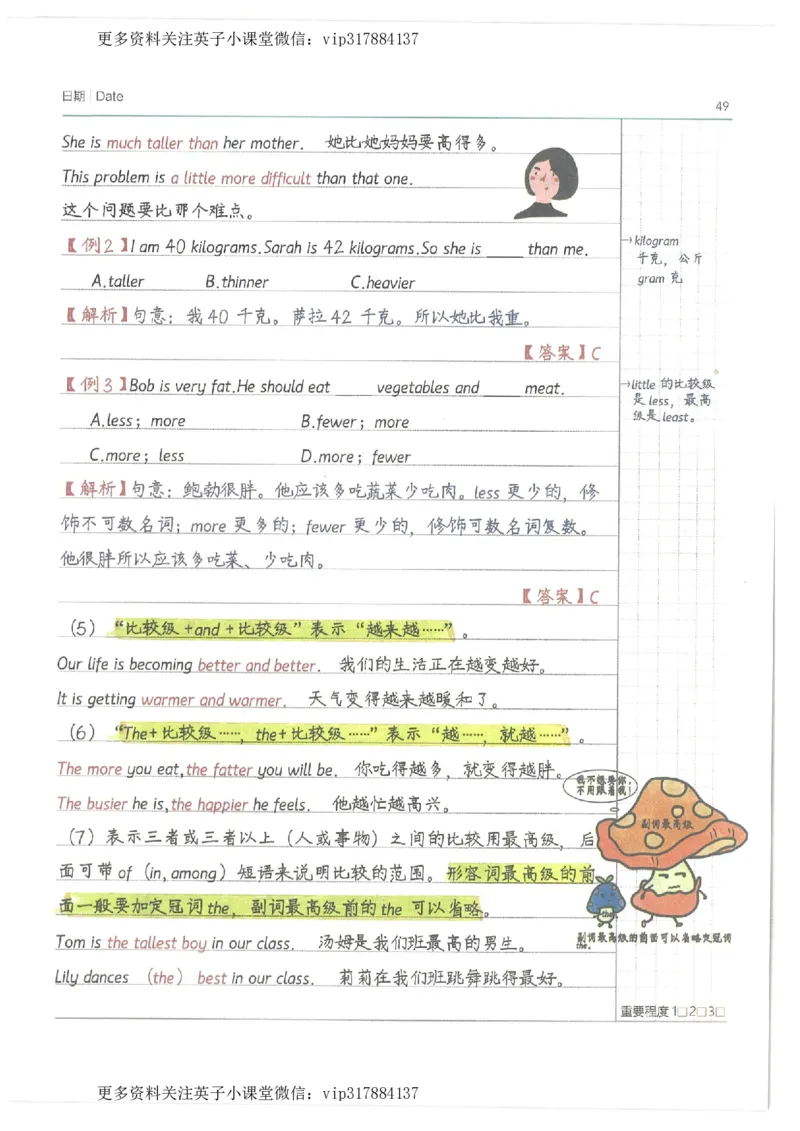 更多资料关注英子小课堂微信：vip317884137
日期 | Date
49
She is much taller than her mother. 她比她妈妈要高得多。
This problem is a little more difficult than that one.
这个问题要比那个难点。
【例2】I am 40 kilograms.Sarah is 42 kilograms.So she is ____ than me.
→kilogram
千克，公斤
gram 克
A.taller B.thinner C.heavier
【解析】句意：我40 千克。萨拉42 千克。所以她比我重。
【答案】C
【例3】Bob is very fat.He should eat ____ vegetables and ____ meat.
→little 的比较级
是 less，最高
级是 least。
A.less；more B.fewer；more
C.more；less D.more；fewer
【解析】句意：鲍勃很胖。他应该多吃蔬菜少吃肉。less 更少的，修
饰不可数名词；more 更多的；fewer 更少的，修饰可数名词复数。
他很胖所以应该多吃菜、少吃肉。
【答案】C
（5）“比较级+and+比较级”表示“越来越……”。
Our life is becoming better and better. 我们的生活正在越变越好。
It is getting warmer and warmer. 天气变得越来越暖和了。
（6）“The+比较级……，the+比较级……”表示“越……，就越……”。
The more you eat,the fatter you will be. 你吃得越多，就变得越胖。
The busier he is,the happier he feels. 他越忙越高兴。
我不想要你，
不用跟着我！
副词最高级
（7）表示三者或三者以上（人或事物）之间的比较用最高级，后
面可带 of（in, among）短语来说明比较的范围。形容词最高级的前
面一般要加定冠词 the，副词最高级前的 the 可以省略。
the
副词最高级的前面可以省略定冠词
the.
Tom is the tallest boy in our class. 汤姆是我们班最高的男生。
Lily dances （the） best in our class. 莉莉在我们班跳舞跳得最好。
重要程度 1□2□3□
更多资料关注英子小课堂微信：vip317884137